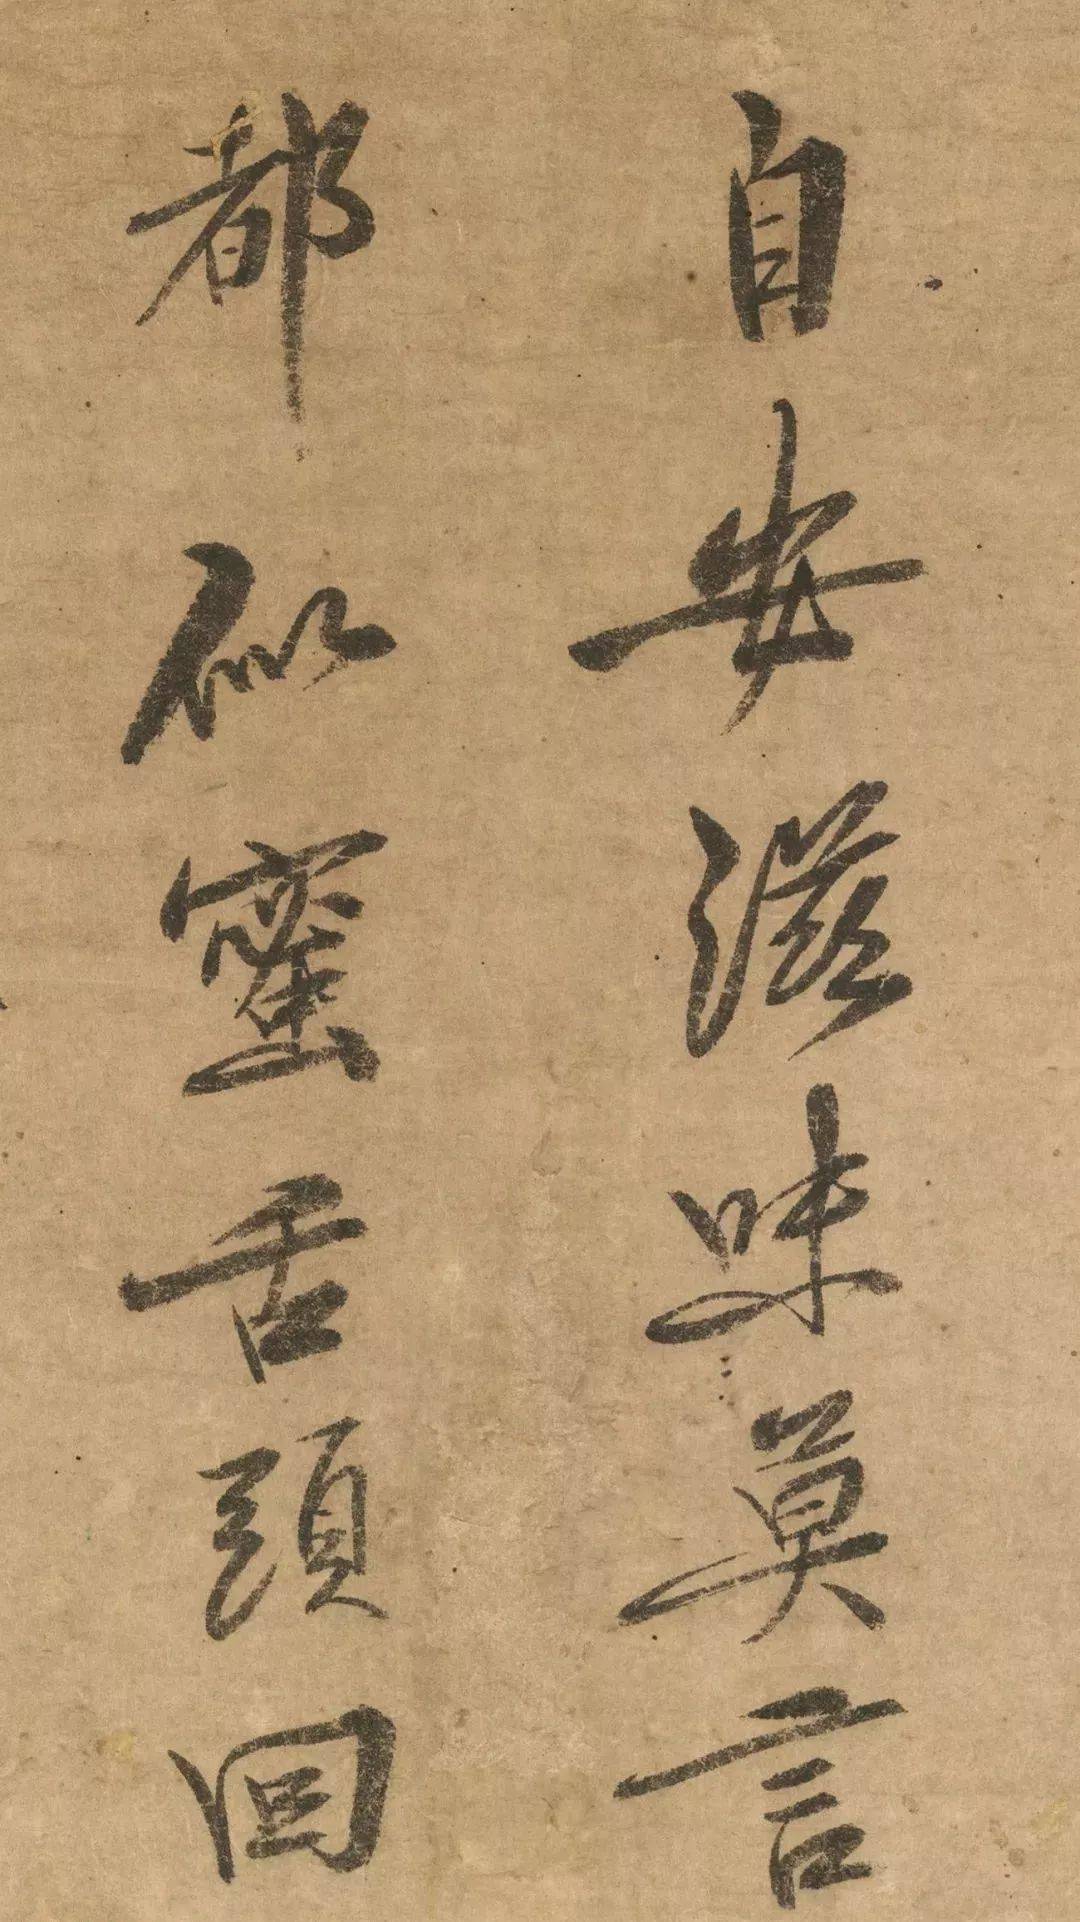 自安滋味莫言
都似蜜舌頭回